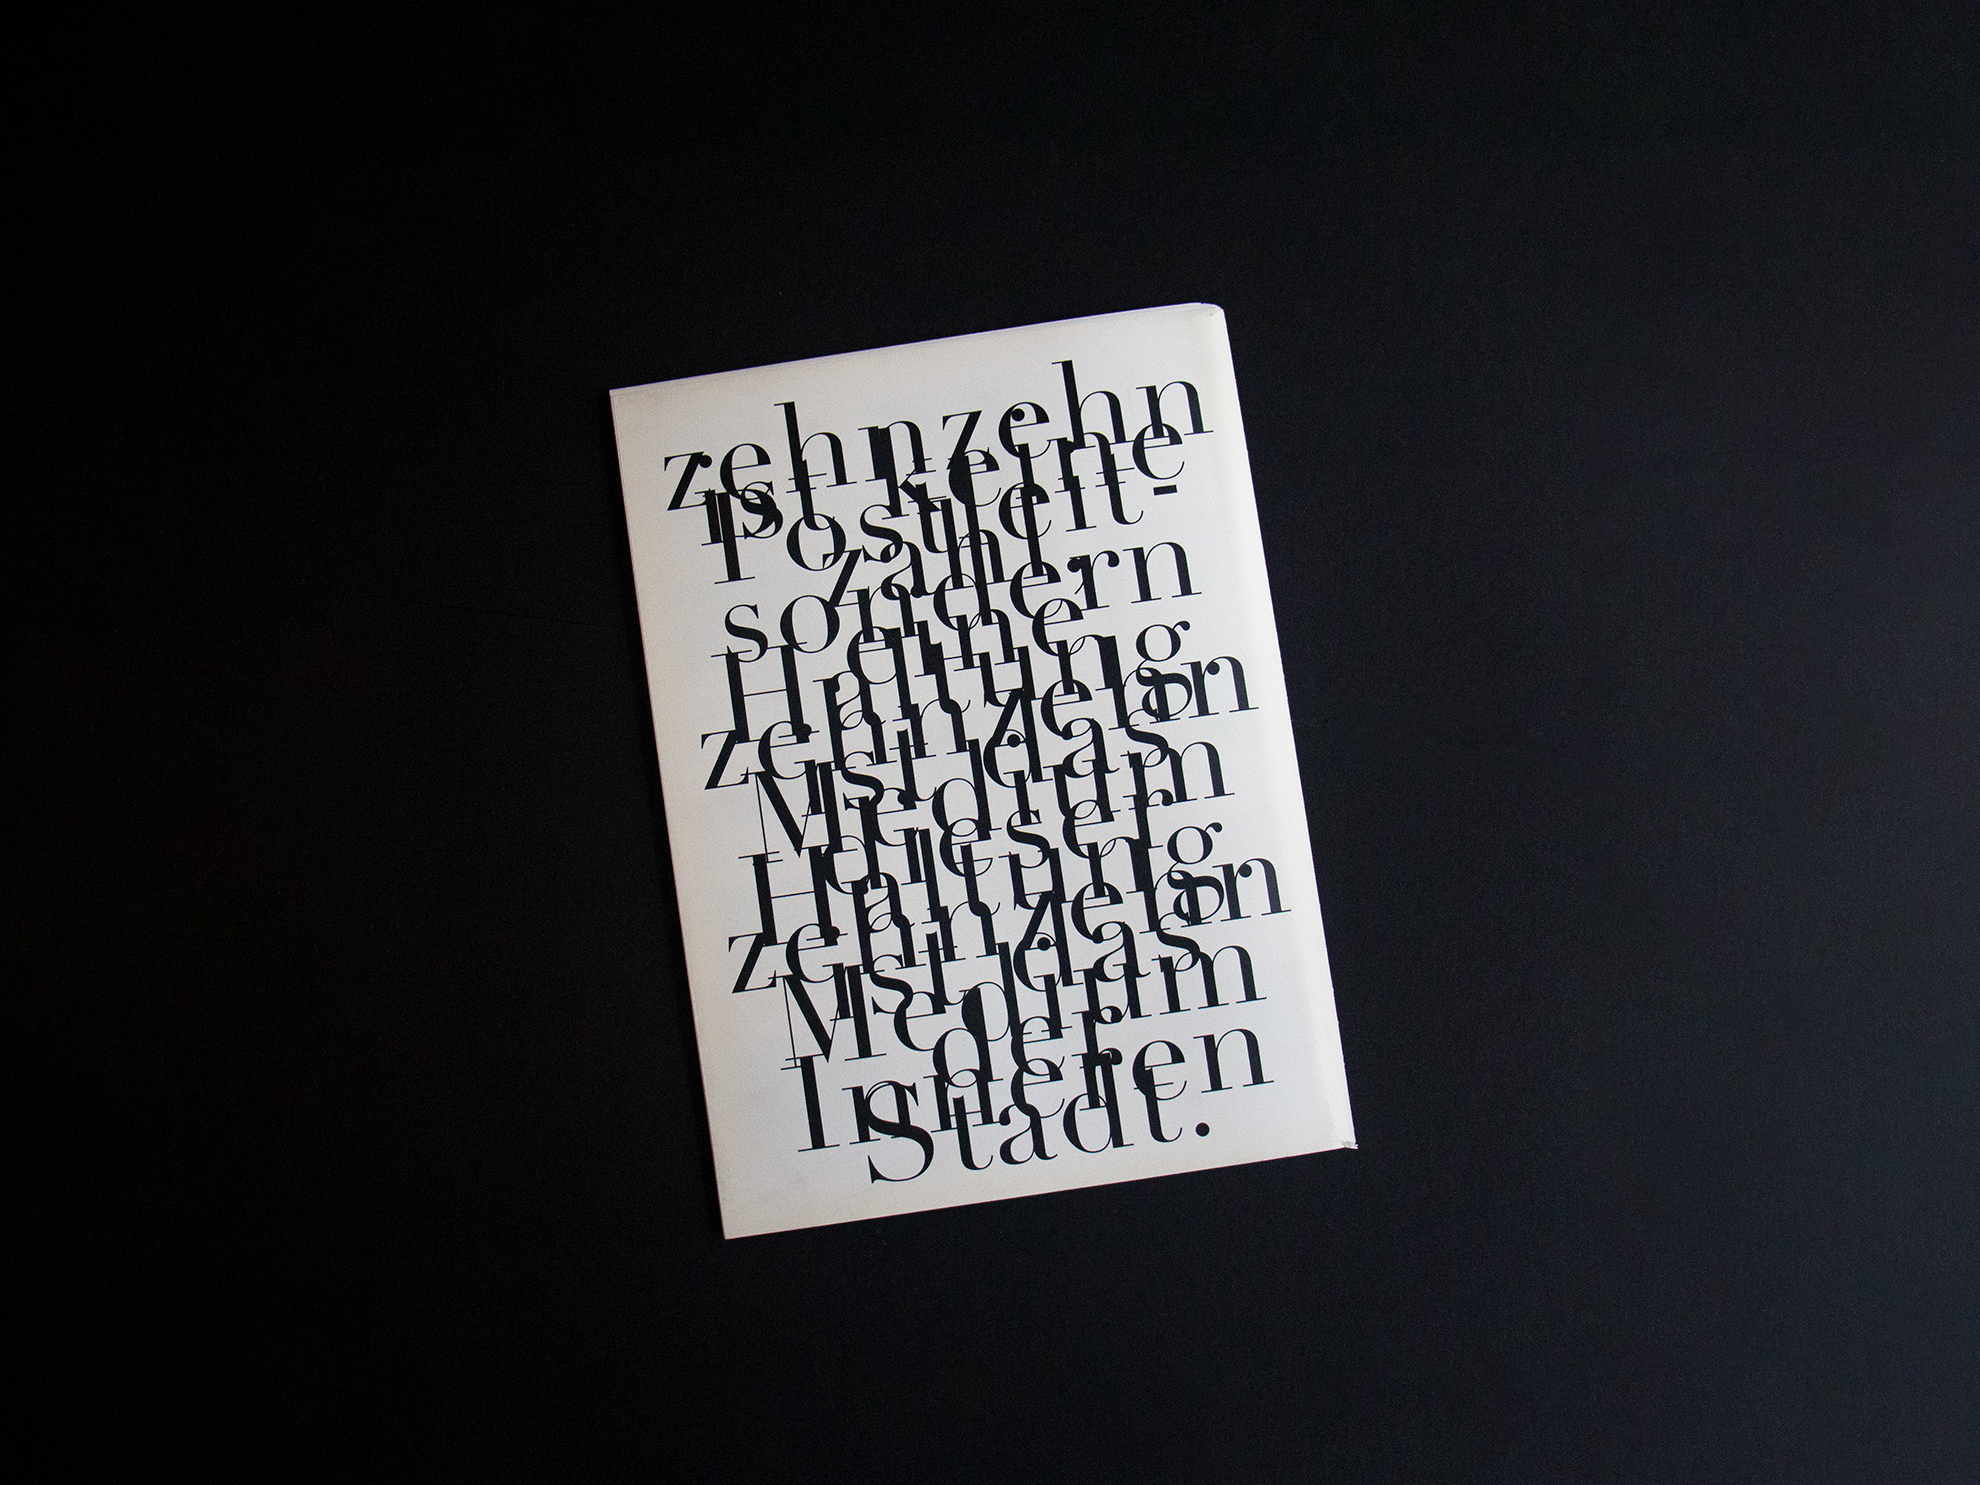 zehnzehn
ist keine
Postleit-
zahl
sondern
eine
Haltung
zehnzehn
ist das
Medium
dieser
Haltung
zehnzehn
ist das
Medium
der
Inneren
Stadt.